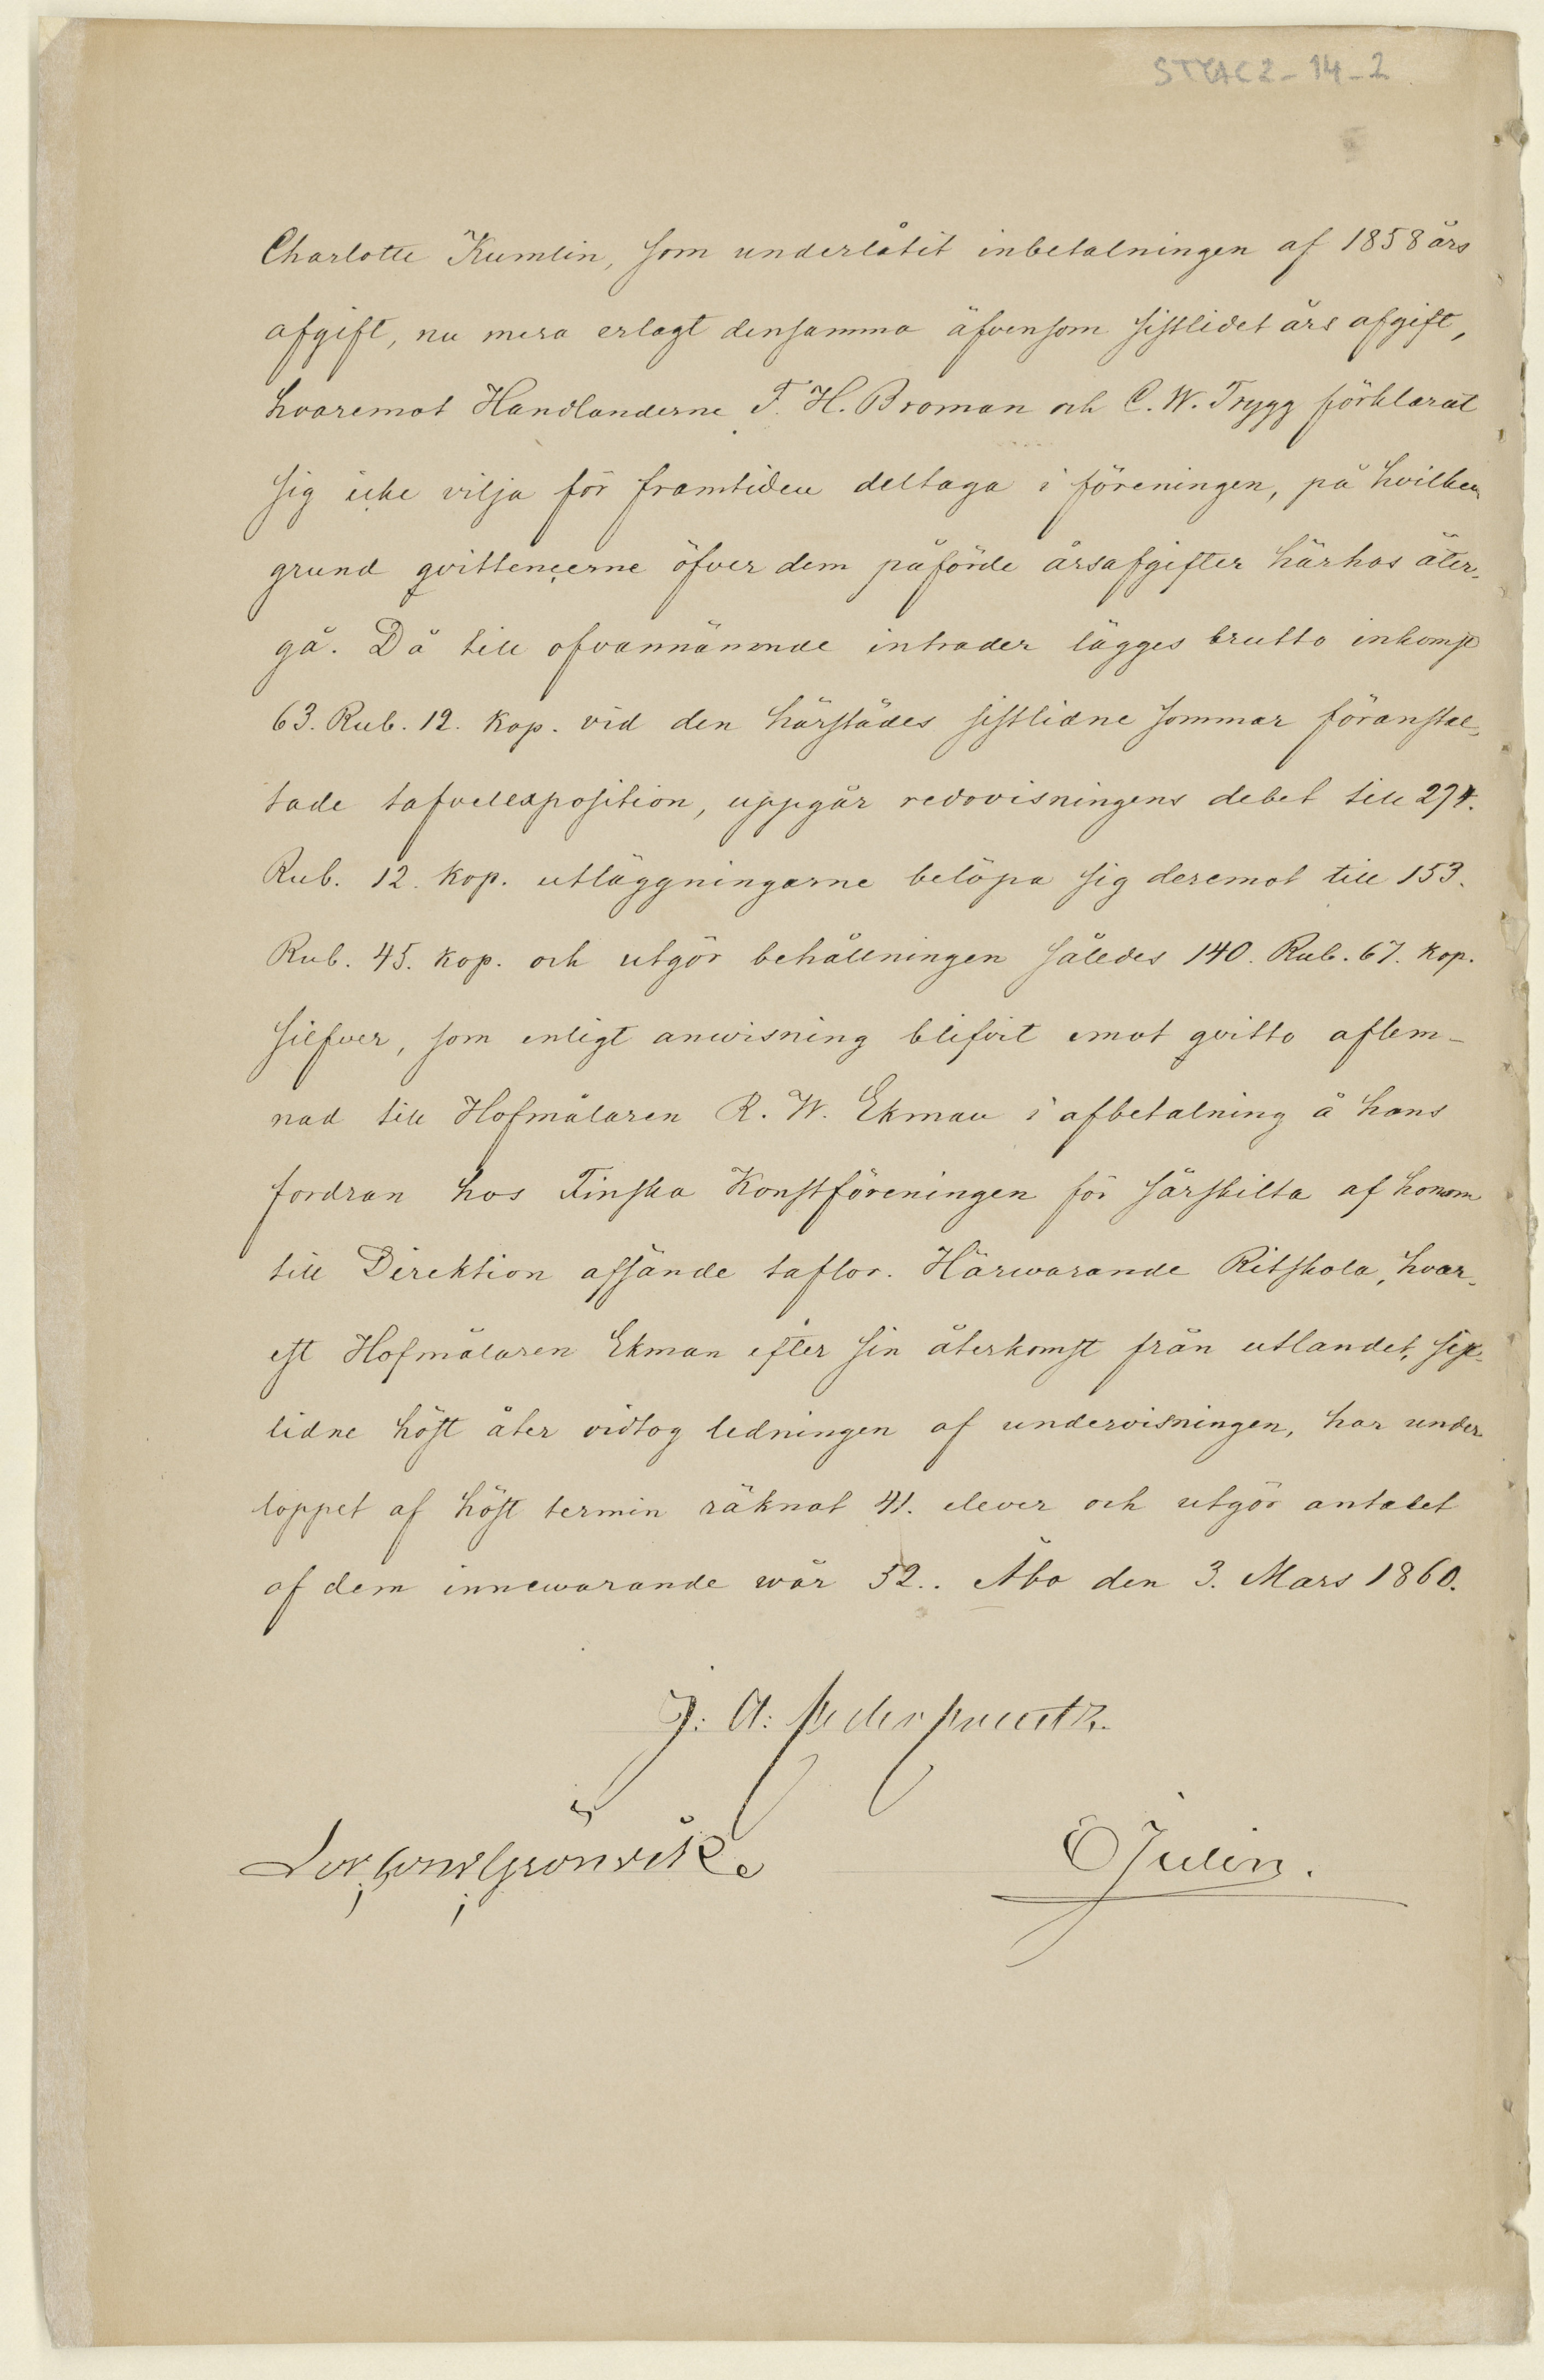 STYAC2-14-2
Charlotte Kumlin, som underlåtit inbetalningen af 1858 års
afgift, nu mera erlagt densamma äfvensom sistlidet års afgift,
hvaremot Handlanderne F. H. Broman och C. W. Trygg förklarat
sig icke vilja för framtiden deltaga i föreningen, på hvilken
grund qvittencerne öfver dem påförde årsafgifter härhos åter-
gå. Då till ofvannämnde intrader lägges brutto inkomst
63. Rub. 12. Kop. vid den härstädes sistlidne sommar föranstal-
tade tafvelexposition, uppgår redovisningens debet till 294.
Rub. 12. Kop. utläggningarne belöpa sig deremot till 153.
Rub. 45. Kop. och utgör behållningen således 140. Rub. 67. Kop.
silfver, som enligt anvisning blifvit emot qvitto aflem-
nad till Hofmålaren R. W. Ekman i afbetalning å hans
fordran hos Finska Konstföreningen för särskilta af honom
till Direktion afsände taflor. Härwarande Ritskola, hvar-
est Hofmålaren Ekman efter sin återkomst från utlandet, sist-
lidne höst åter vidtog ledningen af undervisningen, har under
loppet af höst termin räknat 41. elever och utgör antalet
af dem innewarande wår 52.. Åbo den 3. Mars 1860.
J: A:
E Julin.